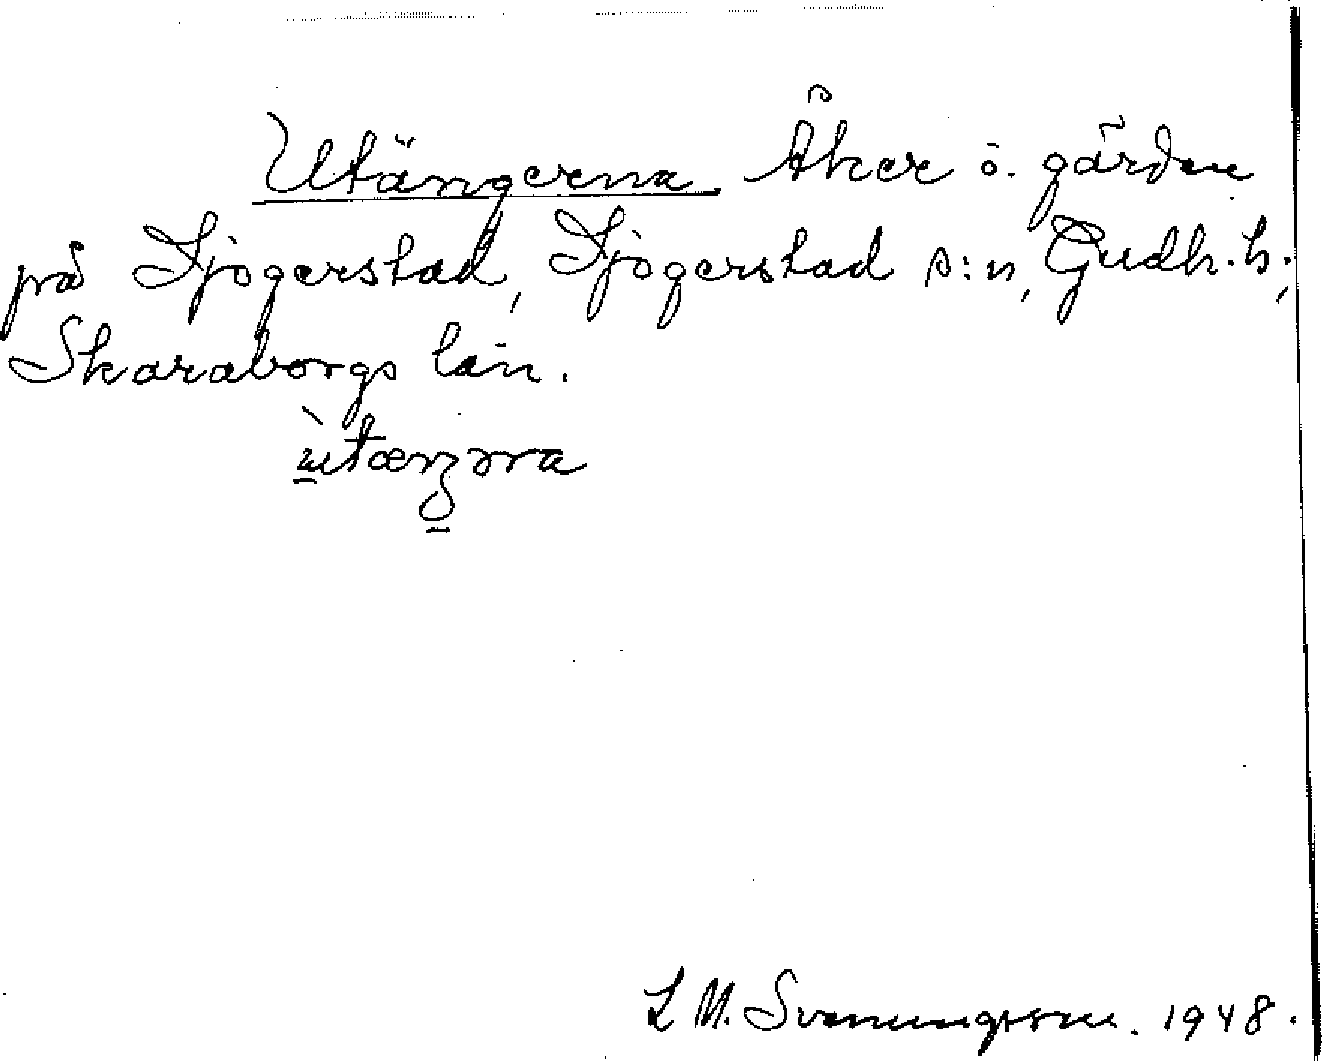 Utängerna Åker ö. gärden
på Sjogerstad, Sjogerstad s:n, Gudh. h.,
Skaraborgs län.
L M. Svenungsson. 1948.